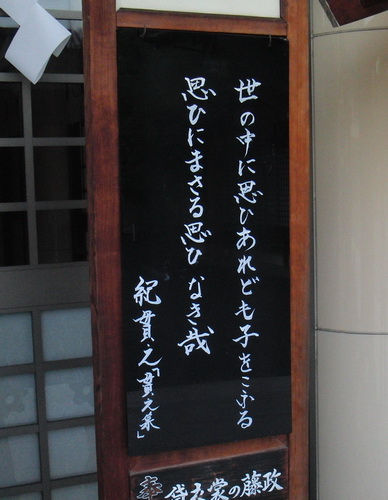 世の中に思ひあれども子をこふる
思ひにまさる思ひ なき哉
紀 貫之「貫之集」
奉
貸衣裳の藤政